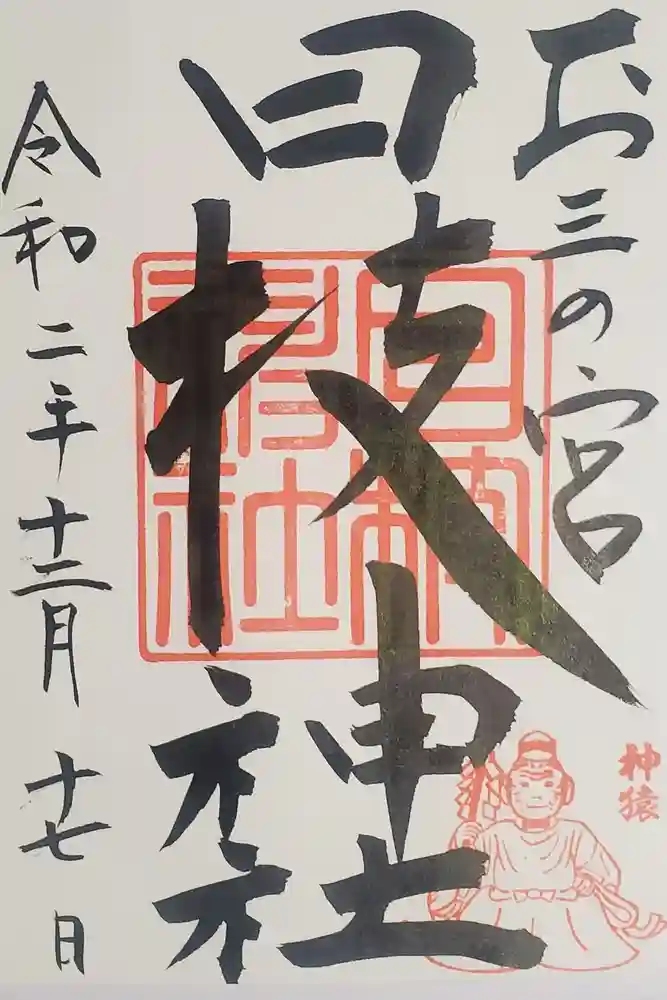 お三の宮
日枝神社
日枝神社
神猿
令和二年十二月十七日